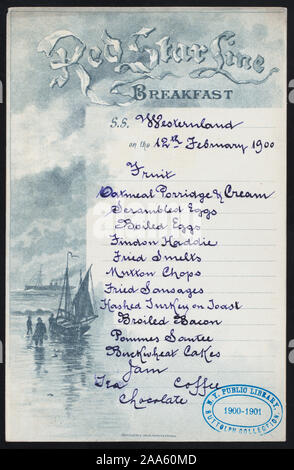 Red Star Line
BREAKFAST
S.S. Westernland
on the 12th February 1900
Fruit
Oatmeal Porridge & Cream
Scrambled Eggs
Boiled Eggs
Findon Haddie
Fried Smelts
Mutton Chops
Fried Sausages
Hashed Turkey on Toast
Broiled Bacon
Pommes Sautee
Buckwheat Cakes
Jam
Tea Coffee
Chocolate
N.Y. PUBLIC LIBRARY,
1900-1901
BUTTOLPH COLLECTION.
alamy
Image ID: 2AA60MD
www.alamy.com